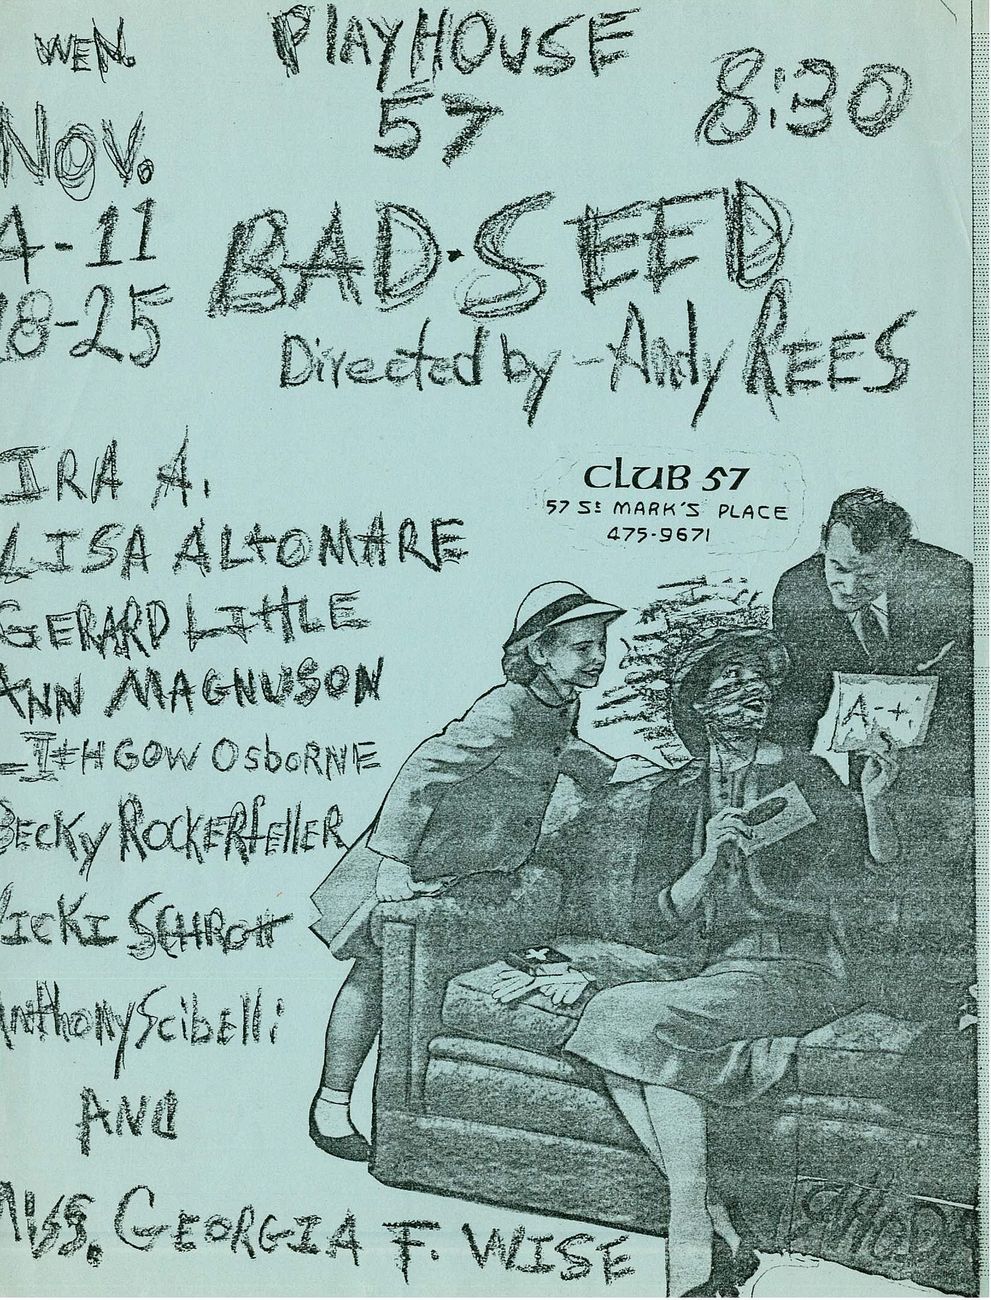 WEN.
NOV.
4-11
18-25
PlAYHOUSE
57
8:30
BAD·SEED
Directed by - Andy REES
CLUB 57
57 St MARK'S PLACE
475-9671
A-+
IRA A.
LISA ALtOMARE
GERARD LittLE
ANN MAGNUSON
LItHGOW OsboRNE
BECKy ROCKERfellER
VICKI SCHROtt
AnthonyScibelli
AND
MISS. GEORGIA F. WISE